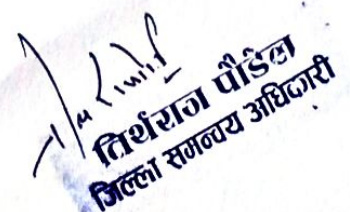 तिर्थराज पौडेल
जिल्ला समन्वय अधिकारी